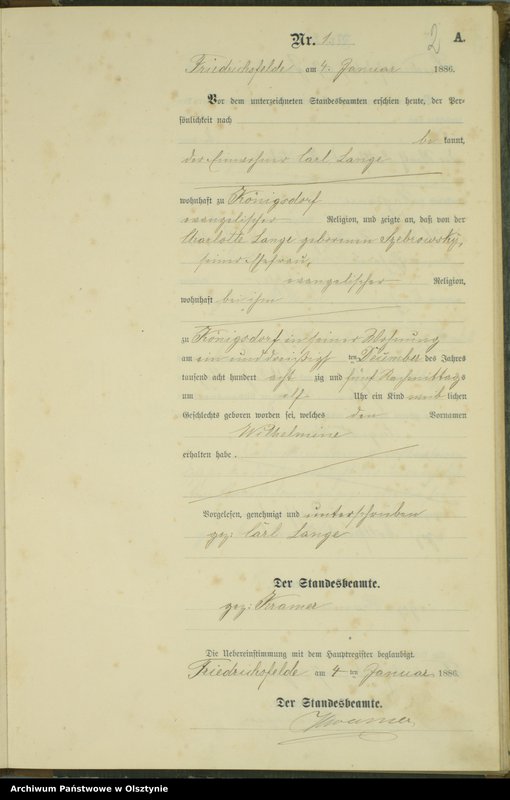 2
Nr. 1. A.
Friedrichsfelde am 4. Januar 1886.
Vor dem unterzeichneten Standesbeamten erschien heute, der Per-
sönlichkeit nach
be kannt,
der Einwohner Carl Lange
wohnhaft zu Königsdorf
evangelischer Religion, und zeigte an, daß von der
Charlotte Lange geborenen Szebrowsky,
seiner Ehefrau,
evangelischer Religion,
wohnhaft bei ihm
zu Königsdorf in seiner Wohnung
am ein und dreißigst ten Dezember des Jahres
tausend acht hundert acht zig und fünf Nachmittags
um elf Uhr ein Kind weib lichen
Geschlechts geboren worden sei, welches den Vornamen
Wilhelmine
erhalten habe.
Vorgelesen, genehmigt und unterschrieben
gez: Carl Lange
Der Standesbeamte.
gez: Kramer
Die Uebereinstimmung mit dem Hauptregister beglaubigt.
Friedrichsfelde am 4 ten Januar 1886.
Der Standesbeamte.
Kramer
Archiwum Państwowe w Olsztynie